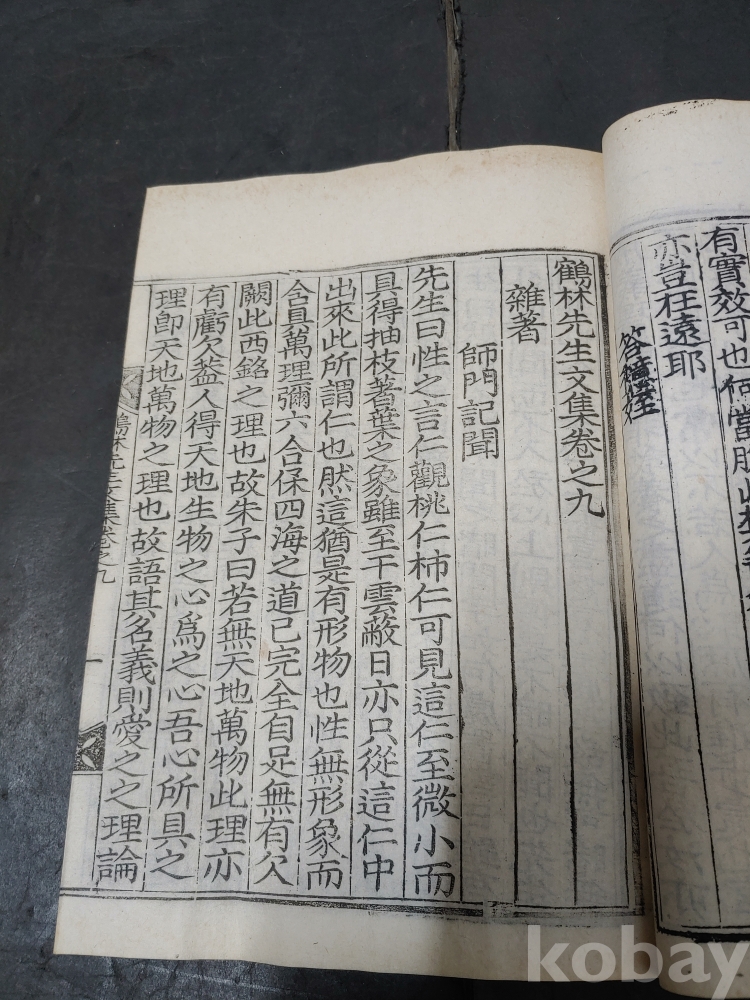 有實效可也何當
亦豈枉遠耶
鶴林先生文集卷之九
雜著
師門記聞
先生曰性之言仁觀桃仁柿仁可見這仁至微小而
具得抽枝著葉之象雖至干雲蔽日亦只從這仁中
出來此所謂仁也然這猶是有形物也性無形象而
含具萬理彌六合保四海之道已完全自足無有欠
闕此西銘之理也故朱子曰若無天地萬物此理亦
有虧欠盖人得天地生物之心爲之心吾心所具之
理卽天地萬物之理也故語其名義則愛之之理論
鶴林先生文集卷之九
一
kobay